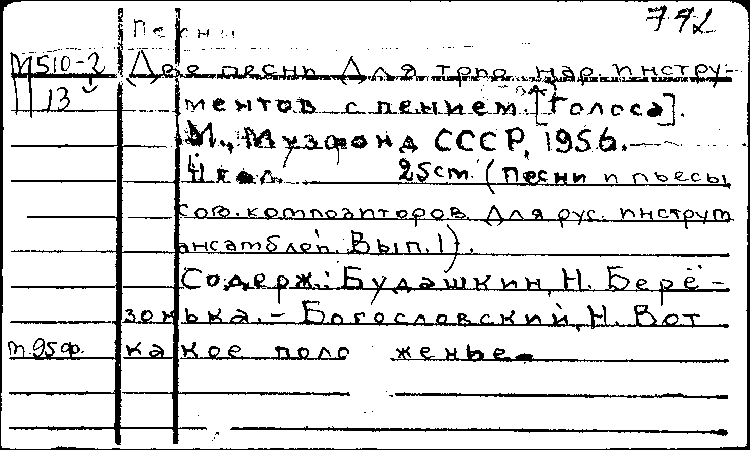 792
Песни
М510-2 Две песни для трио нар. инстру-
13 ментов с пением [голоса].
М., Музфонд СССР, 1956.
25 см. (Песни и пьесы
сов. композиторов для рус. инструм
ансамблей. Вып. 1).
Содерж.: Будашкин, Н. Берё-
зонька. - Богословский, Н. Вот
какое положенье.